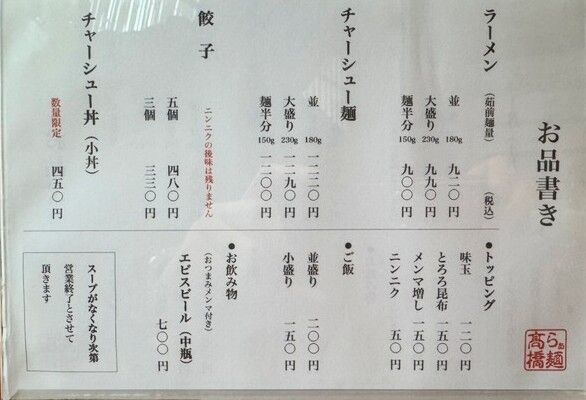 お品書き
らぁ麺
高橋
ラーメン (茹前麺量) (税込)
並 180g 九二〇円
大盛り 230g 九九〇円
麺半分 150g 九〇〇円
チャーシュー麺
並 180g 一二二〇円
大盛り 230g 一二九〇円
麺半分 150g 一二〇〇円
餃子
ニンニクの後味は残りません
五個 四八〇円
三個 三三〇円
チャーシュー丼 (小丼)
数量限定 四五〇円
●トッピング
味玉 一二〇円
とろろ昆布 一五〇円
メンマ増し 一五〇円
ニンニク 五〇円
●ご飯
並盛り 二〇〇円
小盛り 一五〇円
●お飲み物
(おつまみメンマ付き)
エビスビール (中瓶)
七〇〇円
スープがなくなり次第
営業終了とさせて
頂きます